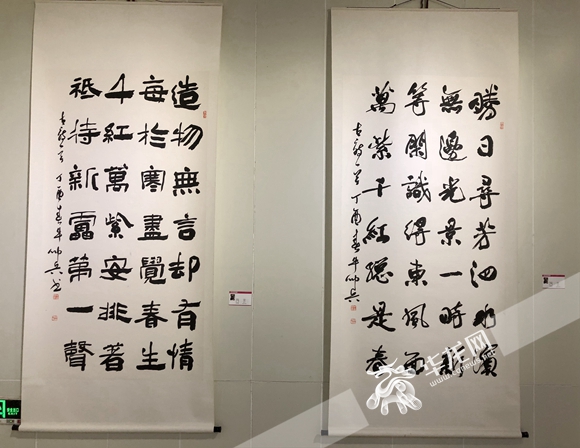 勝日尋芳泗水濱
無邊光景一時新
等閑識得東風面
萬紫千紅總是春
古詩一首 丁酉春
造物無言却有情
每於寒盡覺春生
千紅萬紫安排著
祗待新靁第一聲
古詩一首 丁酉春
华龙网